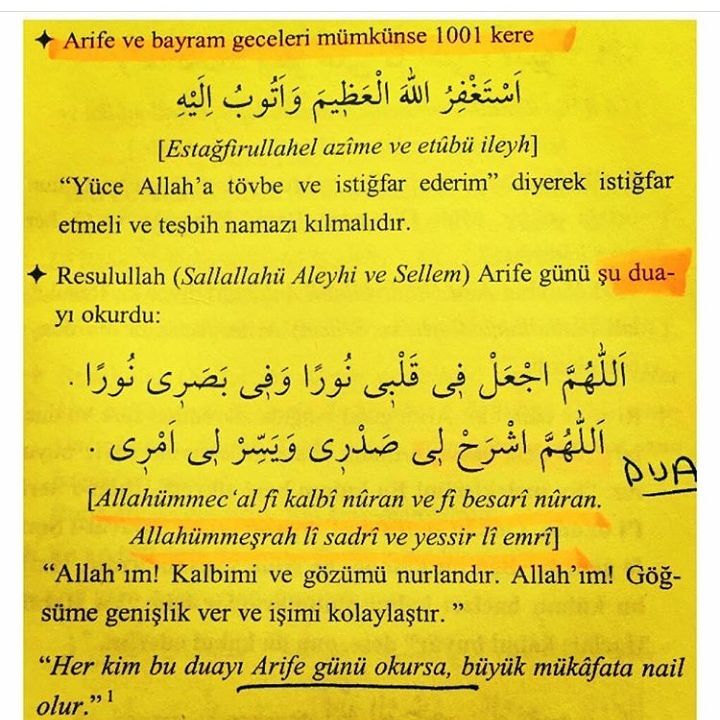 ✦ Arife ve bayram geceleri mümkünse 1001 kere
اَسْتَغْفِرُ اللهَ الْعَظٖيمَ وَاَتُوبُ اِلَيْهِ
[Estağfirullahel azîme ve etûbü ileyh]
“Yüce Allah’a tövbe ve istiğfar ederim” diyerek istiğfar
etmeli ve teşbih namazı kılmalıdır.
✦ Resulullah (Sallallahü Aleyhi ve Sellem) Arife günü şu dua-
yı okurdu:
اَللّٰهُمَّ اجْعَلْ فٖى قَلْبٖى نُورًا وَفٖى بَصَرٖى نُورًا .
اَللّٰهُمَّ اشْرَحْ لٖى صَدْرٖى وَيَسِّرْ لٖى اَمْرٖى .
DUA
[Allahümmec‘al fî kalbî nûran ve fî besarî nûran.
Allahümmeşrah lî sadrî ve yessir lî emrî]
“Allah’ım! Kalbimi ve gözümü nurlandır. Allah’ım! Göğ-
süme genişlik ver ve işimi kolaylaştır. ”
“Her kim bu duayı Arife günü okursa, büyük mükâfata nail
olur.” 1